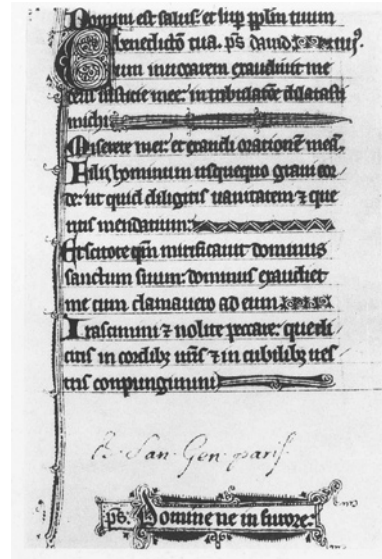 Domini est salus: et sup pplm tuum
benedictio tua. ps dauid
Cum inuocarem exaudiuit me
deus iusticie mee: in tribulatione dilatasti
michi
Miserere mei: et exaudi orationē meā.
Filii hominum usquequo graui cor
de: ut quid diligitis uanitatem ⁊ que
ritis mendatium:
Et scitote qm̄ mirificauit dominus
sanctum suum: dominus exaudiet
me cum clamauero ad eum
Irascimini ⁊ nolite peccare: que di
citis in cordibꝫ ur̄is ⁊ in cubilibꝫ ues
tris conpungimini
San. Gen. paris.
ps. Domine ne in furore: